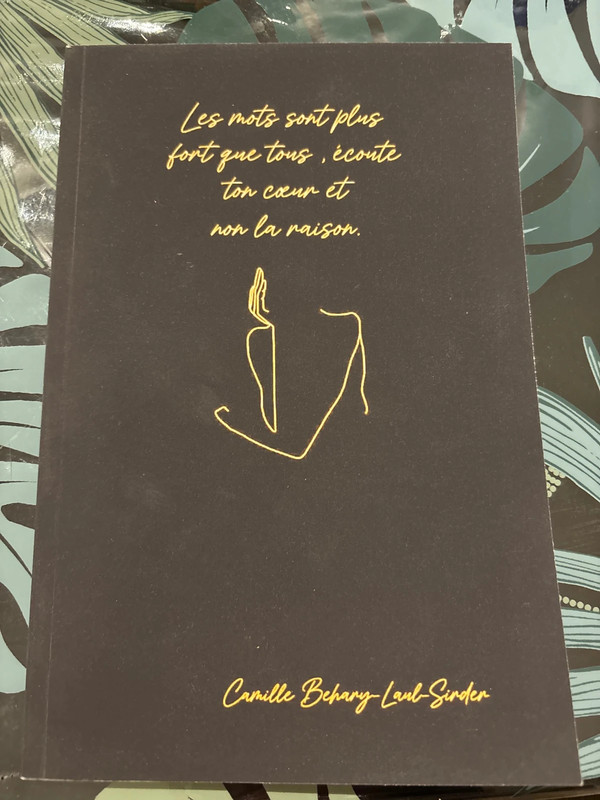 Les mots sont plus
fort que tous , écoute
ton cœur et
non la raison.
Camille Behary-Laul-Sirder